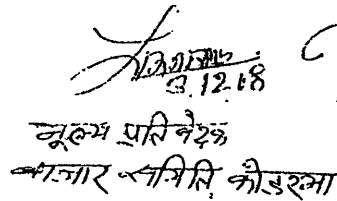 3.12.18
मूल्य प्रतिवेदक
बाजार समिति, कोडरमा